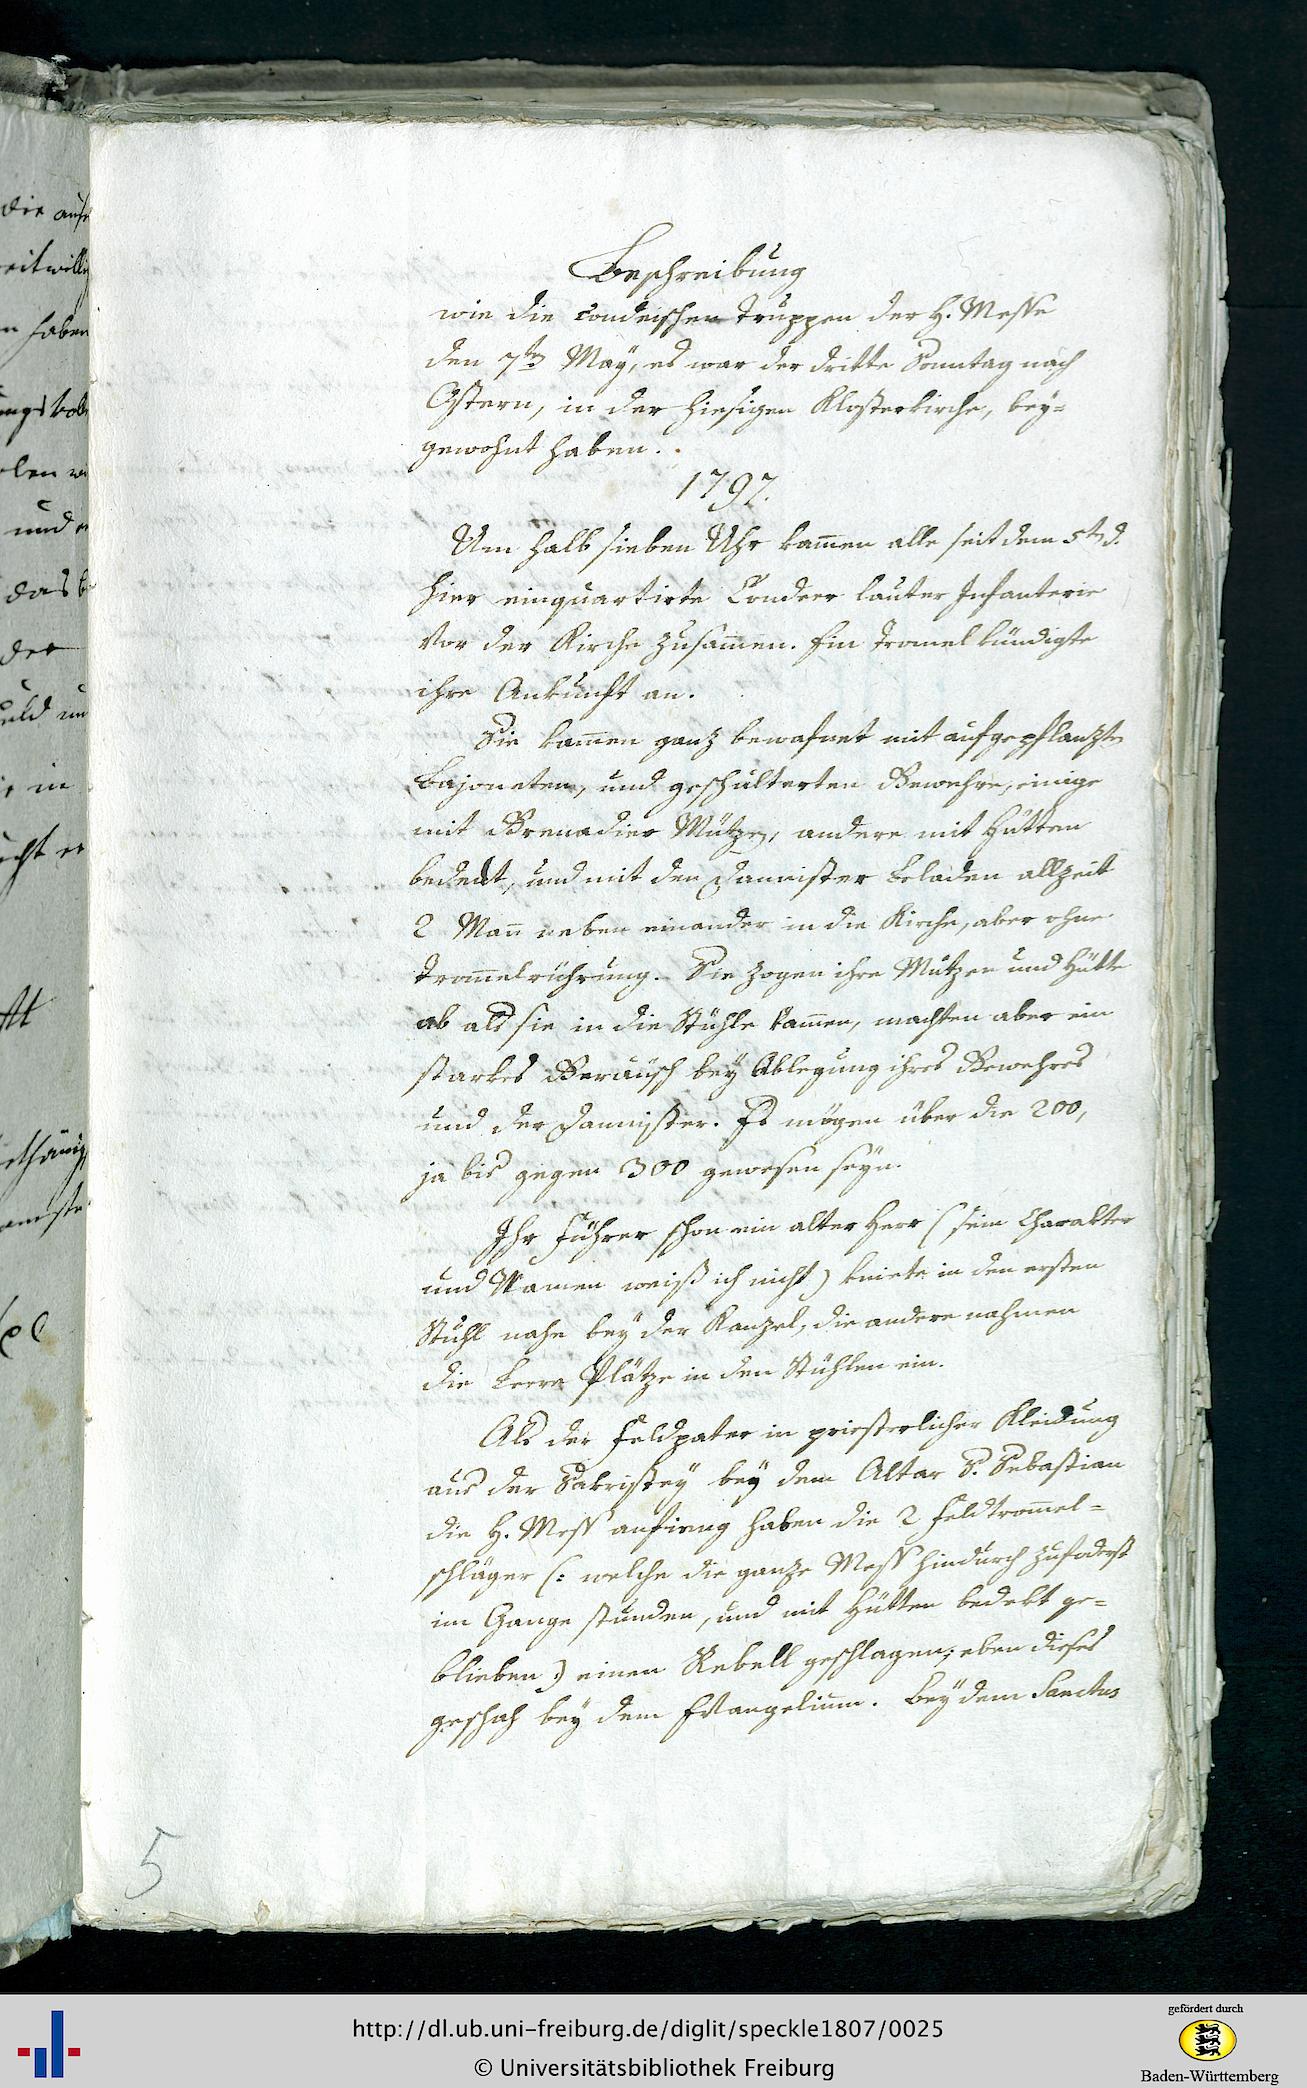 Beschreibung
wie die condeischen Truppen der H. Messe
den 7ten May, es war der dritte Sonntag nach
Ostern, in der hiesigen Klosterkirche, bey=
gewohnt haben.
1797.
Um halb sieben Uhr kam̄en alle, seit dem 5ten d.
hier einquartirte Condeer lauter Infanterie
vor der Kirche zusam̄en. Ein Trom̄el kündigte
ihre Ankunft an.
Sie kam̄en ganz bewafnet mit aufgepflanzten
Bajoneten, und geschulterten Gewehre, einige
mit Grenadier Mützen, andere mit Hütten
bedeckt, und mit den Dannister beladen allzeit
2 Man̄ neben einander in die Kirche, aber ohne
Trom̄elrührung. Sie zogen ihre Mützen und Hütte
ab als sie in die Stühle kam̄en, machten aber ein
starkes Geräusch bey Ablegung ihres Gewehres
und der Dannister. Es mögen über die 200,
ja bis gegen 300 gewesen seyn.
Ihr Führer schon ein alter Herr (sein Charakter
und Namen weiß ich nicht) kniete in den ersten
Stuhl nahe bey der Kanzel, die andere nahmen
die leere Plätze in den Stühlen ein.
Als der Feldpater in priesterlicher Kleidung
aus der Sakristey bey dem Altar S. Sebastian
die H. Mess anfieng haben die 2 Feldtrom̄el=
schläger (: welche die ganze Mess hindurch zuforderst
im Gange stunden, und mit Hütten bedekt ge=
blieben :) einen Rebell geschlagen; eben dieses
geschah bey dem Evangelium. Bey dem Sanctus
5
die
eitwilli
n haben
und
das
der
in
http://dl.ub.uni-freiburg.de/diglit/speckle1807/0025
© Universitätsbibliothek Freiburg
gefördert durch
Baden-Württemberg